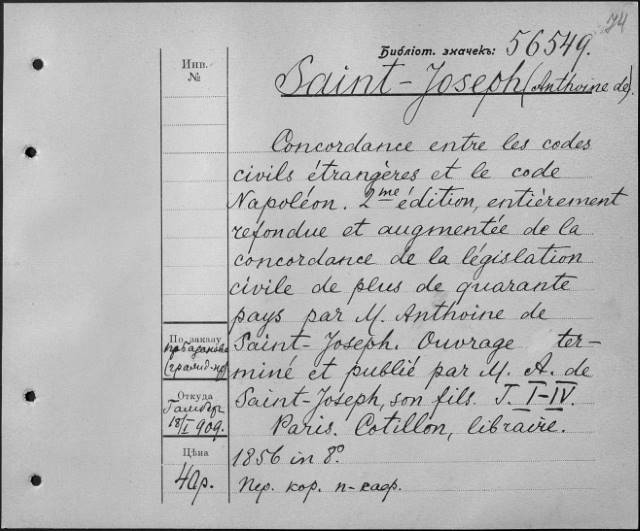 74
Библіот. значекъ: 56549.
Инв.
№
Saint-Joseph (Anthoine de).
Concordance entre les codes
civils étrangères et le code
Napoléon. 2me édition, entièrement
refondue et augmentée de la
concordance de la législation
civile de plus de quarante
pays par M. Anthoine de
Saint-Joseph. Ouvrage ter-
miné et publié par M. A. de
Saint-Joseph, son fils. T. I-IV.
Paris. Cotillon, libraire.
1856 in 8°.
Пер. кор. п-каф.
По заказу
Откуда
18/I 909.
Цѣна
40р.